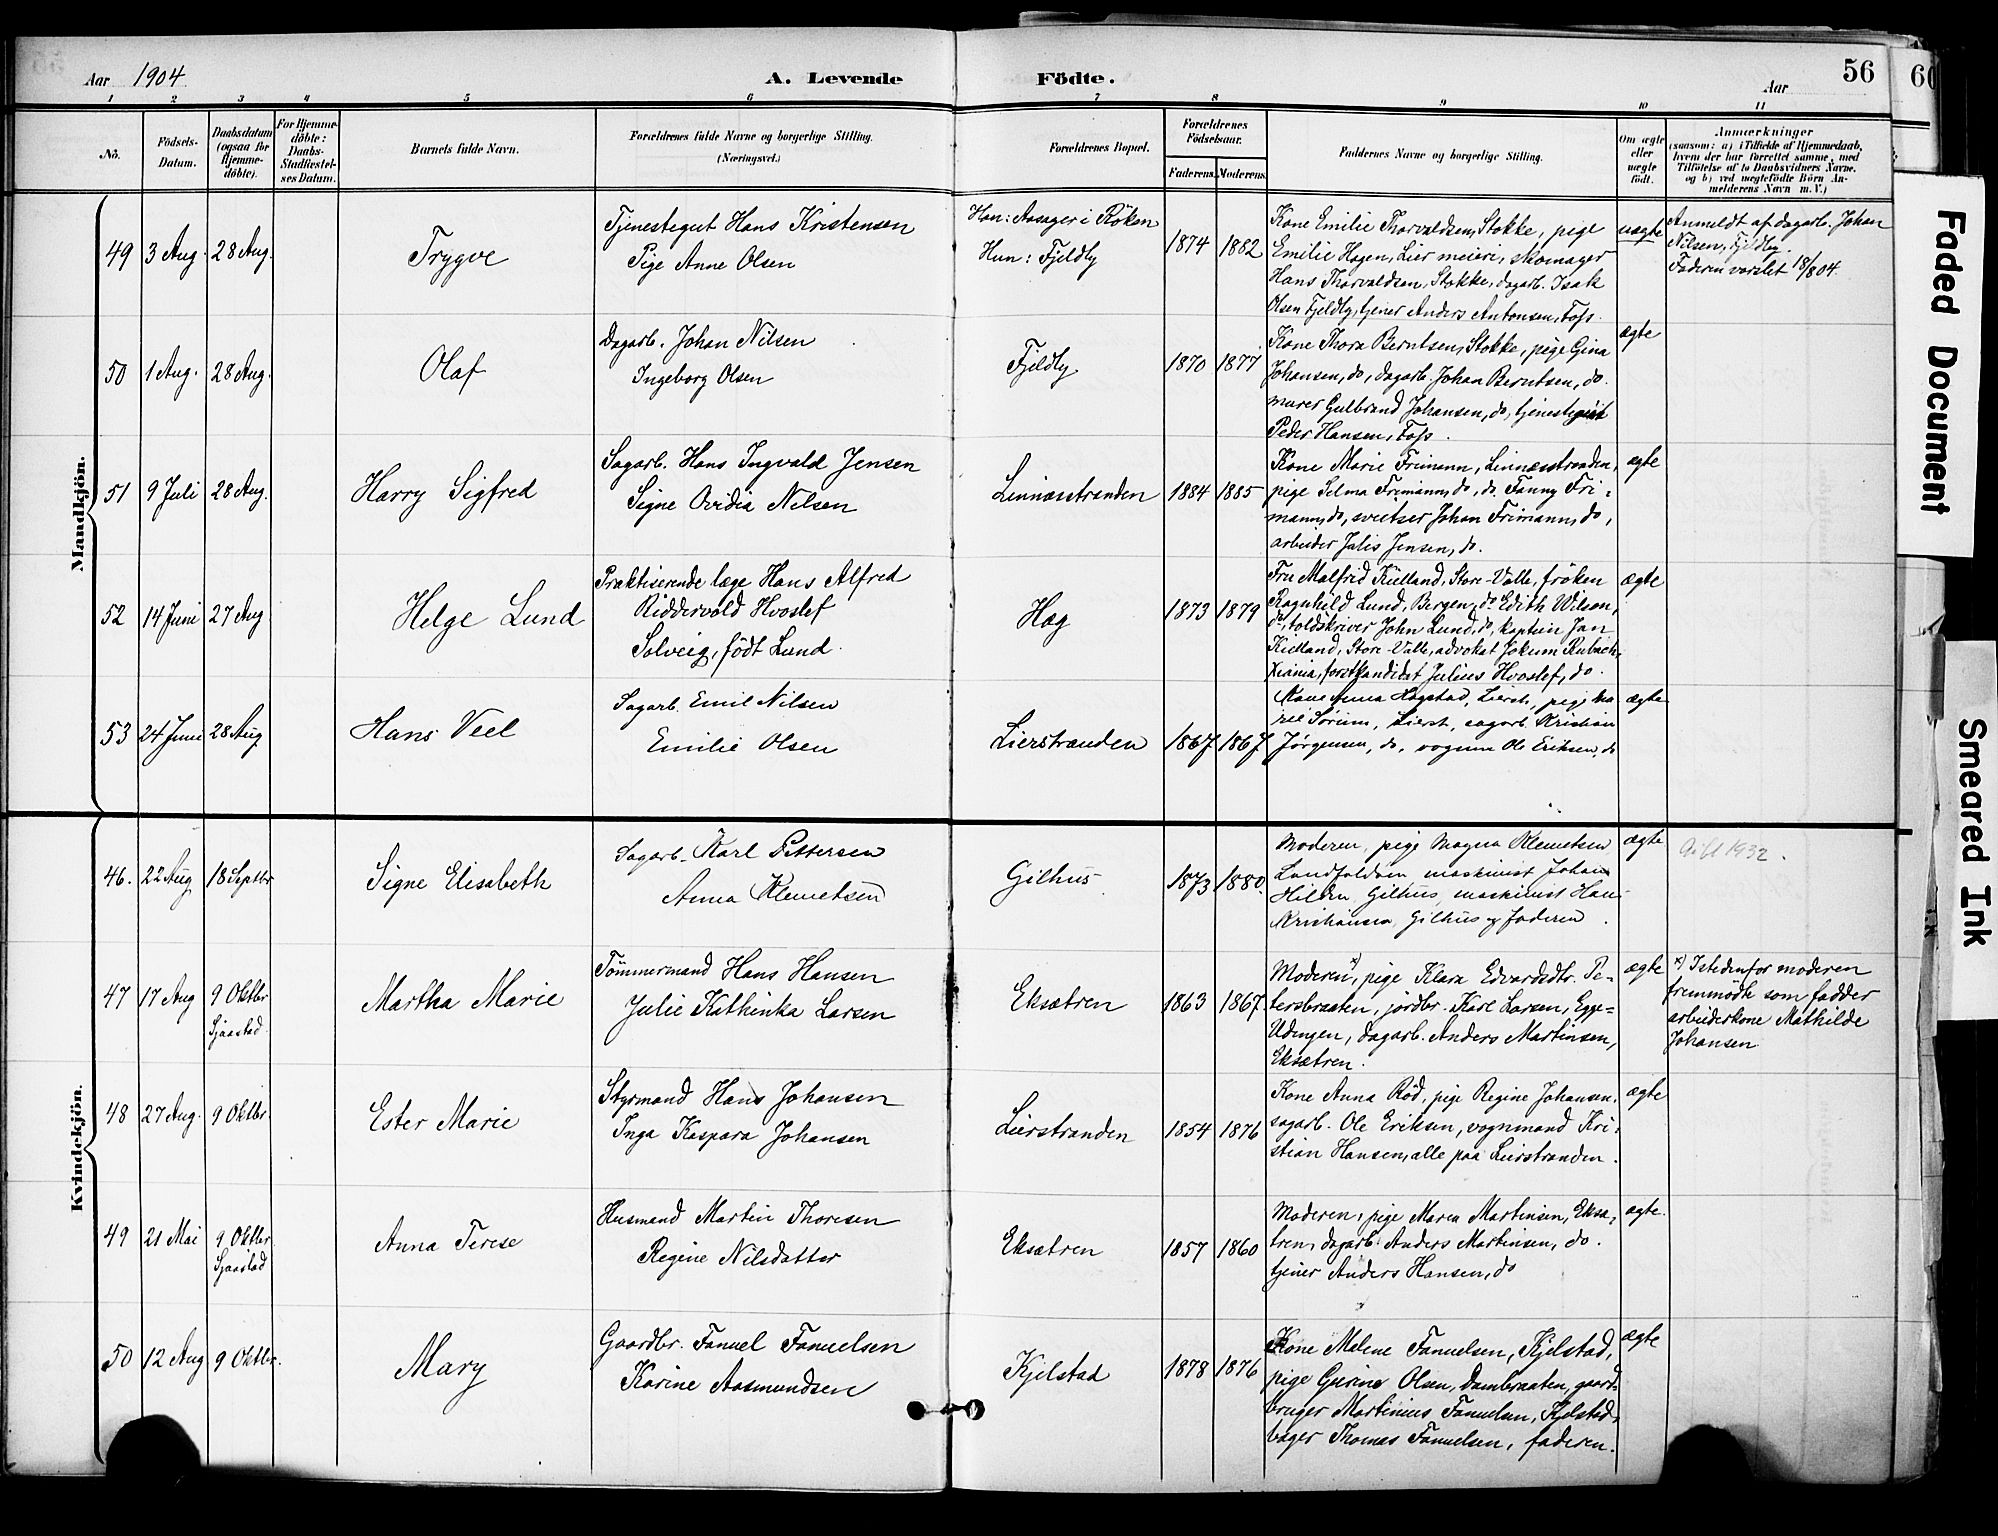 Aar 1904
A. Levende Födte.
Aar
56
60
1 2 3 4 5 6 7 8 9 10 11
No.
Födsels-Datum.
Daabsdatum (ogsaa for Hjemme-döbte).
For Hjemme-döbte: Daabs-Stadfæstel-ses Datum.
Barnets fulde Navn.
Forældrenes fulde Navne og borgerlige Stilling.
(Næringsvei.)
Forældrenes Bopæl.
Forældrenes Födselsaar.
Faderens. Moderens.
Faddernes Navne og borgerlige Stilling.
Om ægte eller uægte födt.
Anmærkninger
(saasom: a) i Tilfælde af Hjemmedaab,
hvem der har forrettet samme, med
Tilföielse af to Daabsvidners Navne,
og b) ved uægtefödte Börn An-
melderens Navn m. V.)
Mandkjön.
49 3 Aug. 28 Aug.
Trygve
Tjenestegut Hans Kristensen
Pige Anne Olsen
Han: Aasager i Röken
Hun: Fjeldby
1874 1882
Kone Emilie Thorvaldsen, Stokke, pige
Emilie Hagen, Lier meieri, skomager
Hans Thorvaldsen, Stokke, dagarb. Isak
Olsen Fjeldby, tjener Anders Antonsen, Foss.
uægte
Anmeldt af dagarb. Johan
Nilsen, Fjeldby.
Faderen varslet 18/8 04.
50 1 Aug. 28 Aug.
Olaf
Dagarb. Johan Nilsen
Ingeborg Olsen
Fjeldby
1870 1877
Kone Thora Berntsen, Stokke, pige Gina
Johansen, do, dagarb. Johan Berntsen, do.
murer Gulbrand Johansen, do, tjenestegut
Peder Hansen, Foss.
ægte
51 9 Juli 28 Aug.
Harry Sigfred
Sagarb. Hans Ingvald Jensen
Signe Ovidia Nilsen
Linnæsstranden
1884 1885
Kone Marie Frimann, Linnæsstranden,
pige Selma Frimann, do, do. Fanny Fri-
mann, do, sveitser Johan Frimann, do,
arbeider Julis Jensen, do.
ægte
52 14 Juni 27 Aug
Helge Lund
Praktiserende læge Hans Alfred
Riddervold Hvoslef
Solveig, födt Lund.
Hæg
1873 1879
Fru Malfrid Kielland, Store-Valle, fröken
Ragnhild Lund, Bergen, do Edith Wilson,
do, toldskriver John Lund, do, kaptein Jan
Kielland, Store-Valle, advokat Jokum Rubach,
Kiania, forstkandidat Julius Hvoslef, do.
ægte
53 24 Juni 28 Aug
Hans Veel
Sagarb. Emil Nilsen
Emilie Olsen
Lierstranden
1867 1867
Kone Anna Hagstad, Lierst, pige Ka
ren Sörum, Lierst, sagarb. Kristian
Jörgensen, do, vognm Ole Eriksen, do
ægte
Kvindekjön.
46. 22 Aug 18 Septbr
Signe Elisabeth
Sagarb. Karl Pettersen
Anna Klemetsen
Gilhus
1873 1880.
Moderen, pige Magna Klemetsen
maskinist Johan
Gilhus, maskinist Hans
Kristiansen, Gilhus og faderen.
ægte
Gift 1932.
47 17 Aug 9 Oktbr Sjaastad.
Martha Marie
Tömmermand Hans Hansen
Julie Kathinka Larsen
Eksætren
1863 1867.
Moderen x), pige Klara Edvardsdtr. Pe-
tersbraaten, jordbr. Karl Larsen, Egge-
Udengen, dagarb. Anders Martinsen,
Eksætren.
ægte
x) Istedenfor moderen
fremmödte som fadder
arbeiderkone Mathilde
Johansen
48 27 Aug. 9 Oktbr
Ester Marie
Styrmand Hans Johansen
Inga Kaspara Johansen
Lierstranden
1854 1876
Kone Anna Röd, pige Regine Johansen,
sagarb. Ole Eriksen, vognmand Kri-
stian Hansen, alle paa Lierstranden.
ægte
49 21 Mai 9 Oktbr Sjaastad
Anna Terese
Husmand Martin Thoresen
Regine Nilsdatter
Eksætren
1857 1860
Moderen, pige Maren Martinsen, Eksæ-
tren, dagarb. Anders Martinsen, do.
tjener Anders Hansen, do
ægte.
50 12 Aug 9 Oktbr.
Mary
Gaardbr. Fanuel Fanuelsen
Karine Aasmundsen
Kjelstad
1878 1876
Kone Malene Fanuelsen, Kjelstad,
pige Gurine Olsen, Dambraaten, gaard-
bruger Martinius Fanuelsen, Kjelstad,
bager Thomas Fanuelsen, faderen.
ægte
Faded Document
Smeared Ink